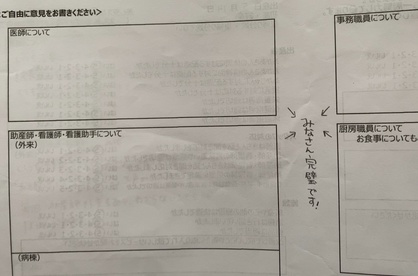 ご自由に意見をお書きください＞
医師について
事務職員について
助産師・看護師・看護助手について
（外来）
みなさん完璧です！
厨房職員について
お食事についても
（病棟）